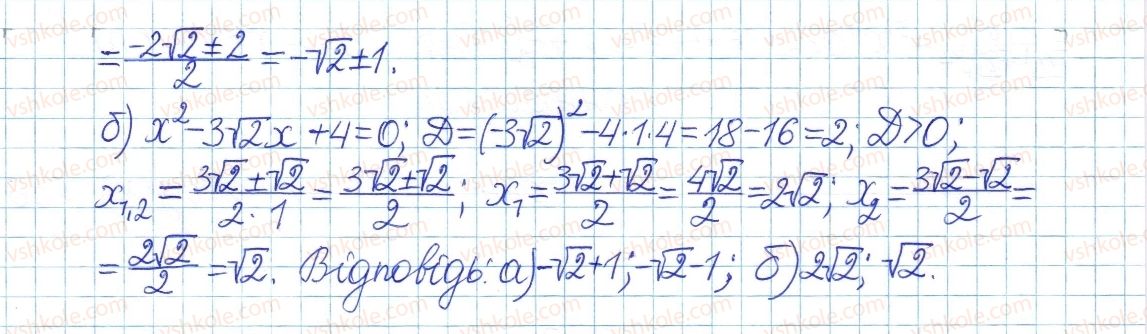 = (-2√2 ± 2)/2 = -√2 ± 1.
б) x² - 3√2x + 4 = 0; D = (-3√2)² - 4·1·4 = 18 - 16 = 2; D > 0;
x₁,₂ = (3√2 ± √2)/(2·1) = (3√2 ± √2)/2; x₁ = (3√2 + √2)/2 = 4√2/2 = 2√2; x₂ = (3√2 - √2)/2 =
= 2√2/2 = √2. Відповідь: а) -√2 + 1; -√2 - 1; б) 2√2; √2.
vshkole.com